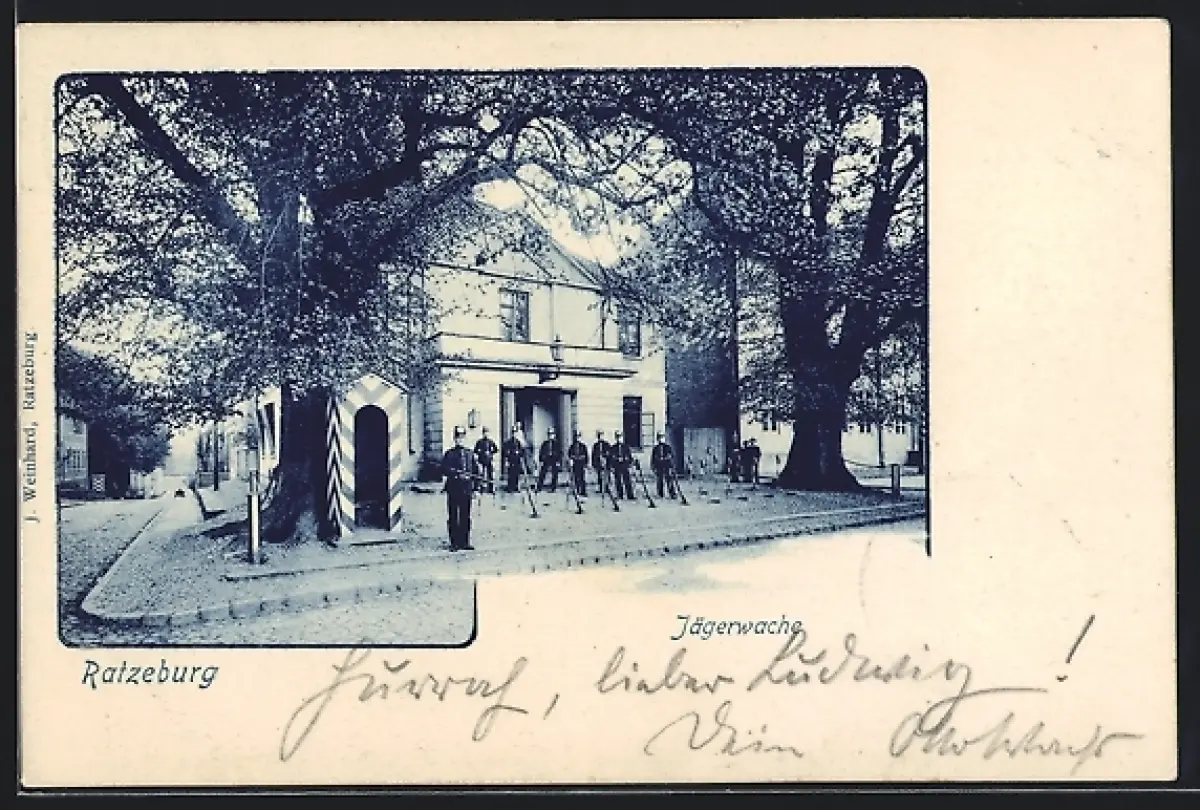 J. Weinhard, Ratzeburg
Jägerwache
Ratzeburg
Hurrah, lieber Ludwig!
Dein Otto